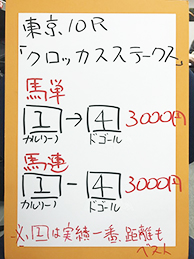 東京10R
「クロッカスステークス」
馬単
1→4 3000円
カルリーノ ドゴール
馬連
1-4 3000円
カルリーノ ドゴール
必、1は実績一番、距離も
ベスト